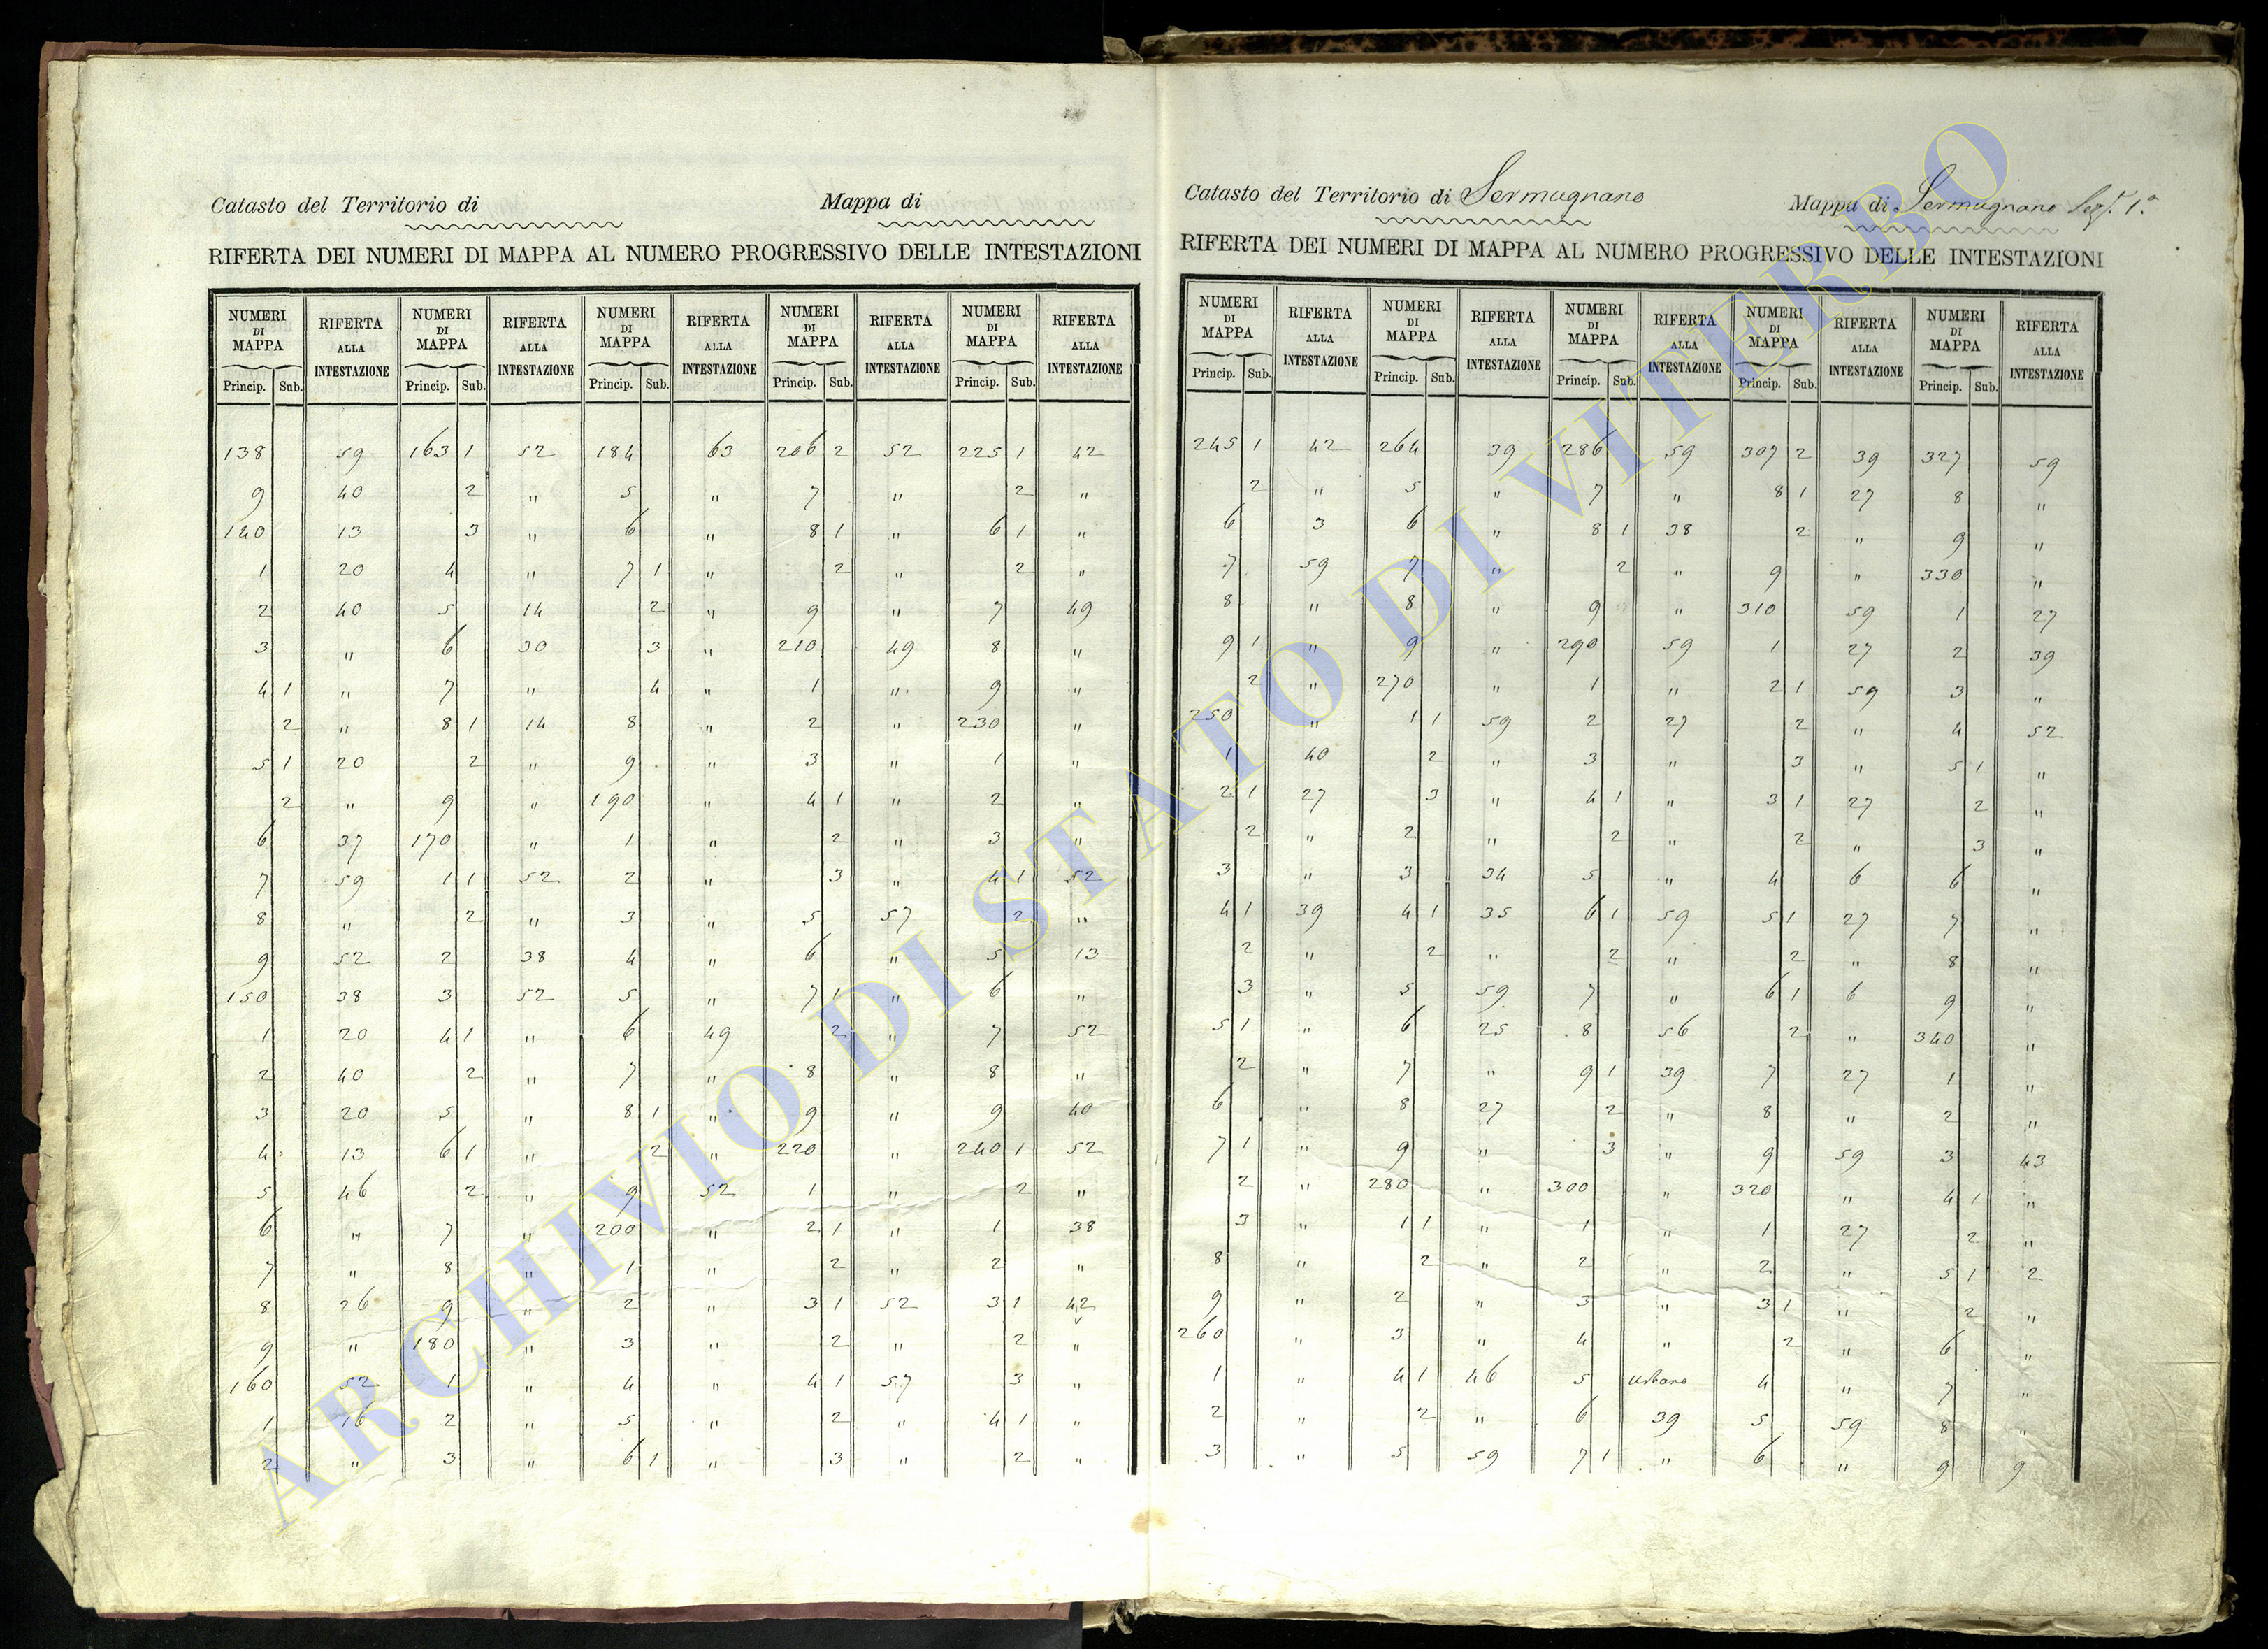 Catasto del Territorio di Mappa di
RIFERTA DEI NUMERI DI MAPPA AL NUMERO PROGRESSIVO DELLE INTESTAZIONI
NUMERI DI MAPPA RIFERTA ALLA INTESTAZIONE NUMERI DI MAPPA RIFERTA ALLA INTESTAZIONE NUMERI DI MAPPA RIFERTA ALLA INTESTAZIONE NUMERI DI MAPPA RIFERTA ALLA INTESTAZIONE NUMERI DI MAPPA RIFERTA ALLA INTESTAZIONE
Princip. Sub. Princip. Sub. Princip. Sub. Princip. Sub. Princip. Sub.
138 59 163 1 52 184 63 206 2 52 225 1 42
9 40 2 " 5 " 7 " 2 "
140 13 3 " 6 " 8 1 " 6 1 "
1 20 4 " 7 1 " 2 " 2 "
2 40 5 14 2 " 9 " 7 49
3 " 6 30 3 " 210 49 8 "
4 1 " 7 " 4 " 1 " 9 "
2 " 8 1 14 8 " 2 " 230 "
5 1 20 2 " 9 " 3 " 1 "
2 " 9 " 190 " 4 1 " 2 "
6 37 170 " 1 " 2 " 3 "
7 59 1 1 52 2 " 3 " 4 1 52
8 " 2 " 3 " 5 57 2 "
9 52 2 38 4 " 6 " 5 13
150 38 3 52 5 " 7 1 " 6 "
1 20 4 1 " 6 49 2 " 7 52
2 40 2 " 7 " 8 " 8 "
3 20 5 " 8 1 " 9 " 9 40
4 13 6 1 " 2 " 220 " 240 1 52
5 46 2 " 9 52 1 " 2 "
6 " 7 " 200 " 2 1 " 1 38
7 " 8 " 1 " 2 " 2 "
8 26 9 " 2 " 3 1 52 3 1 42
9 " 180 " 3 " 2 " 2 "
160 52 1 " 4 " 4 1 57 3 "
1 16 2 " 5 " 2 " 4 1 "
2 " 3 " 6 1 " 3 " 2 "
Catasto del Territorio di Sermugnano Mappa di Sermugnano Sez. 1.a
RIFERTA DEI NUMERI DI MAPPA AL NUMERO PROGRESSIVO DELLE INTESTAZIONI
NUMERI DI MAPPA RIFERTA ALLA INTESTAZIONE NUMERI DI MAPPA RIFERTA ALLA INTESTAZIONE NUMERI DI MAPPA RIFERTA ALLA INTESTAZIONE NUMERI DI MAPPA RIFERTA ALLA INTESTAZIONE NUMERI DI MAPPA RIFERTA ALLA INTESTAZIONE
Princip. Sub. Princip. Sub. Princip. Sub. Princip. Sub. Princip. Sub.
245 1 42 264 39 286 59 307 2 39 327 59
2 " 5 " 7 " 8 1 27 8 "
6 3 6 " 8 1 38 2 " 9 "
7 59 7 " 2 " 9 " 330 "
8 " 8 " 9 " 310 59 1 27
9 1 " 9 " 290 59 1 27 2 39
2 " 270 " 1 " 2 1 59 3 "
250 " 1 1 59 2 27 2 " 4 52
1 40 2 " 3 " 3 " 5 1 "
2 1 27 3 " 4 1 " 3 1 27 2 "
2 " 2 " 2 " 2 " 3 "
3 " 3 34 5 " 4 6 6 "
4 1 39 4 1 35 6 1 59 5 1 27 7 "
2 " 2 " 2 " 2 " 8 "
3 " 5 59 7 " 6 1 6 9 "
5 1 " 6 25 8 56 2 " 340 "
2 " 7 " 9 1 39 7 27 1 "
6 " 8 27 2 " 8 " 2 "
7 1 " 9 " 3 " 9 59 3 43
2 " 280 " 300 " 320 " 4 1 "
3 " 1 1 " 1 " 1 27 2 "
8 " 2 " 2 " 2 " 5 1 2
9 " 2 " 3 " 3 1 " 2 "
260 " 3 " 4 " 2 " 6 "
1 " 4 1 46 5 Urbano 4 " 7 "
2 " 2 " 6 39 5 59 8 "
3 " 5 59 7 1 " 6 " 9 9
ARCHIVIO DI STATO DI VITERBO